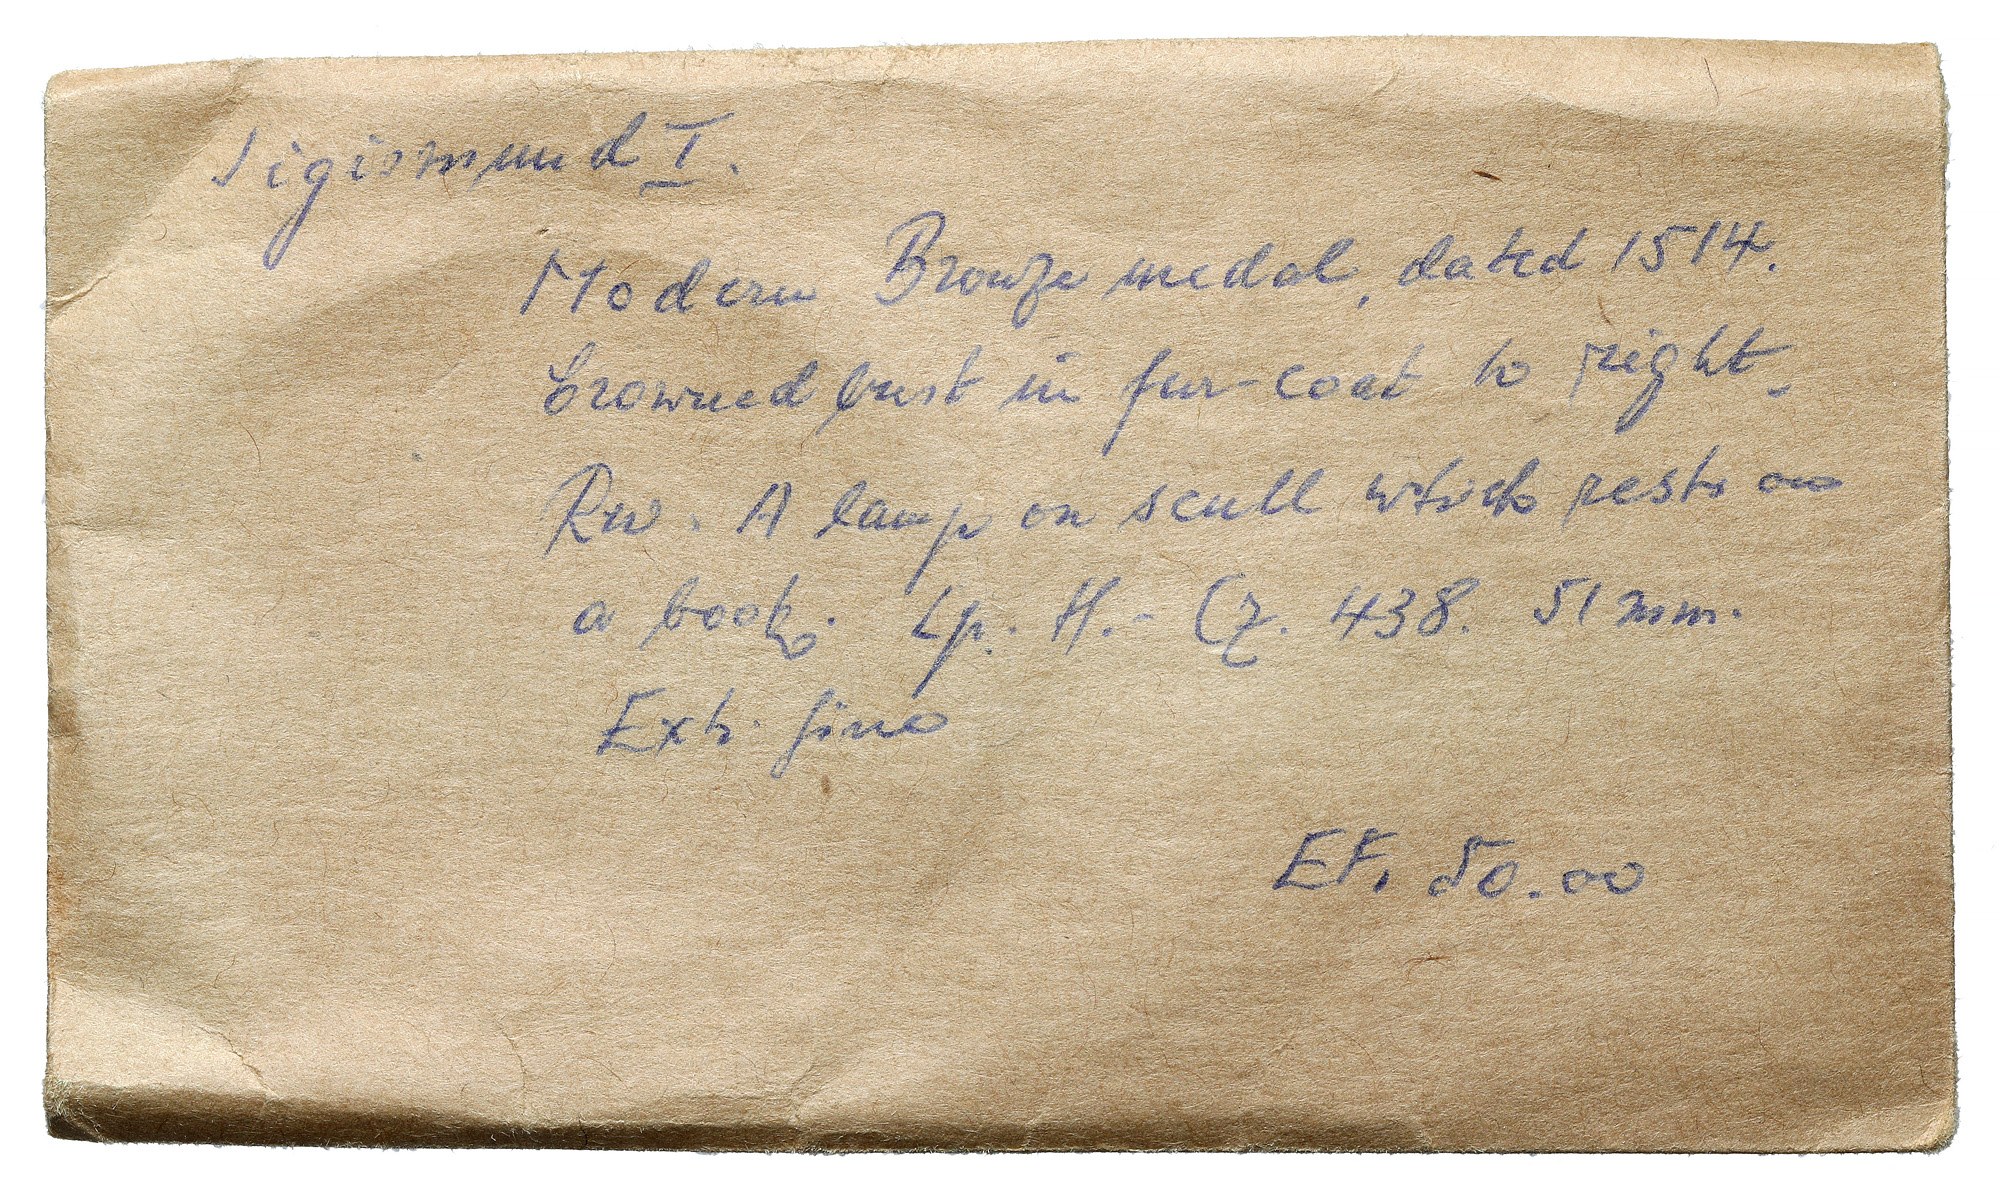 Sigismund I.
Modern Bronze medal, dated 1514.
Crowned bust in fur-coat to right.
Rev. A lamp on scull which rests on
a book. Cp. H.-Cz. 438. 51 mm.
Extr. fine
EF. 50.00